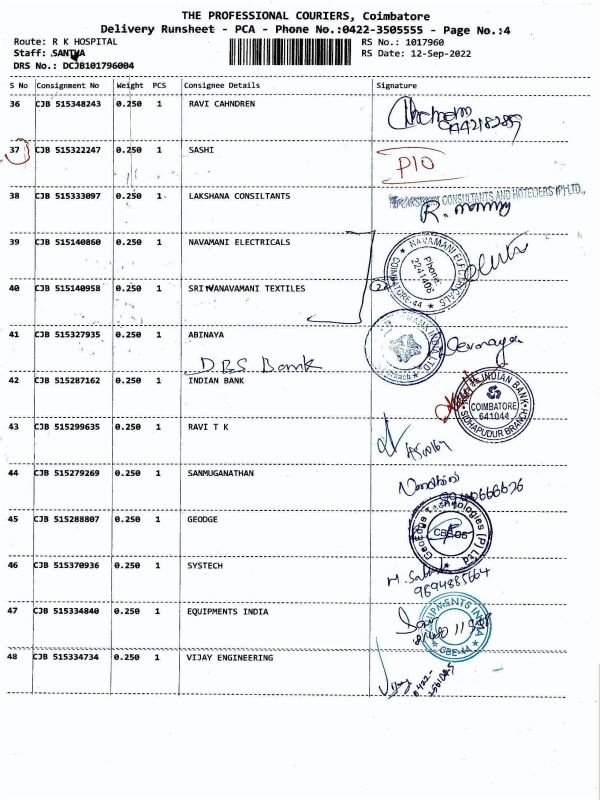 THE PROFESSIONAL COURIERS, Coimbatore
Delivery Runsheet - PCA - Phone No.:0422-3505555 - Page No.:4
Route: R K HOSPITAL RS No.: 1017960
Staff: .SANTHA RS Date: 12-Sep-2022
DRS No.: DCJB101796004
S No Consignment No Weight PCS Consignee Details Signature
36 CJB 515348243 0.250 1 RAVI CAHNDREN
37 CJB 515322247 0.250 1 SASHI P10
38 CJB 515333097 0.250 1 LAKSHANA CONSILTANTS CONSULTANTS AND HOTELIERS (P) LTD.,
39 CJB 515140860 0.250 1 NAVAMANI ELECTRICALS NAVAMANI ELECTRICALS COIMBATORE-44 Phone: 2241406
40 CJB 515140958 0.250 1 SRI NAVAMANI TEXTILES 22
41 CJB 515327935 0.250 1 ABINAYA
DBS Bank
42 CJB 515287162 0.250 1 INDIAN BANK INDIAN BANK COIMBATORE 641044 BRANCH
43 CJB 515299635 0.250 1 RAVI T K
44 CJB 515279269 0.250 1 SANMUGANATHAN
45 CJB 515288807 0.250 1 GEODGE GeoEdge Technologies (P) Ltd
46 CJB 515370936 0.250 1 SYSTECH 9894885664
47 CJB 515334840 0.250 1 EQUIPMENTS INDIA EQUIPMENTS INDIA CBE-44
48 CJB 515334734 0.250 1 VIJAY ENGINEERING Vijay 0422-